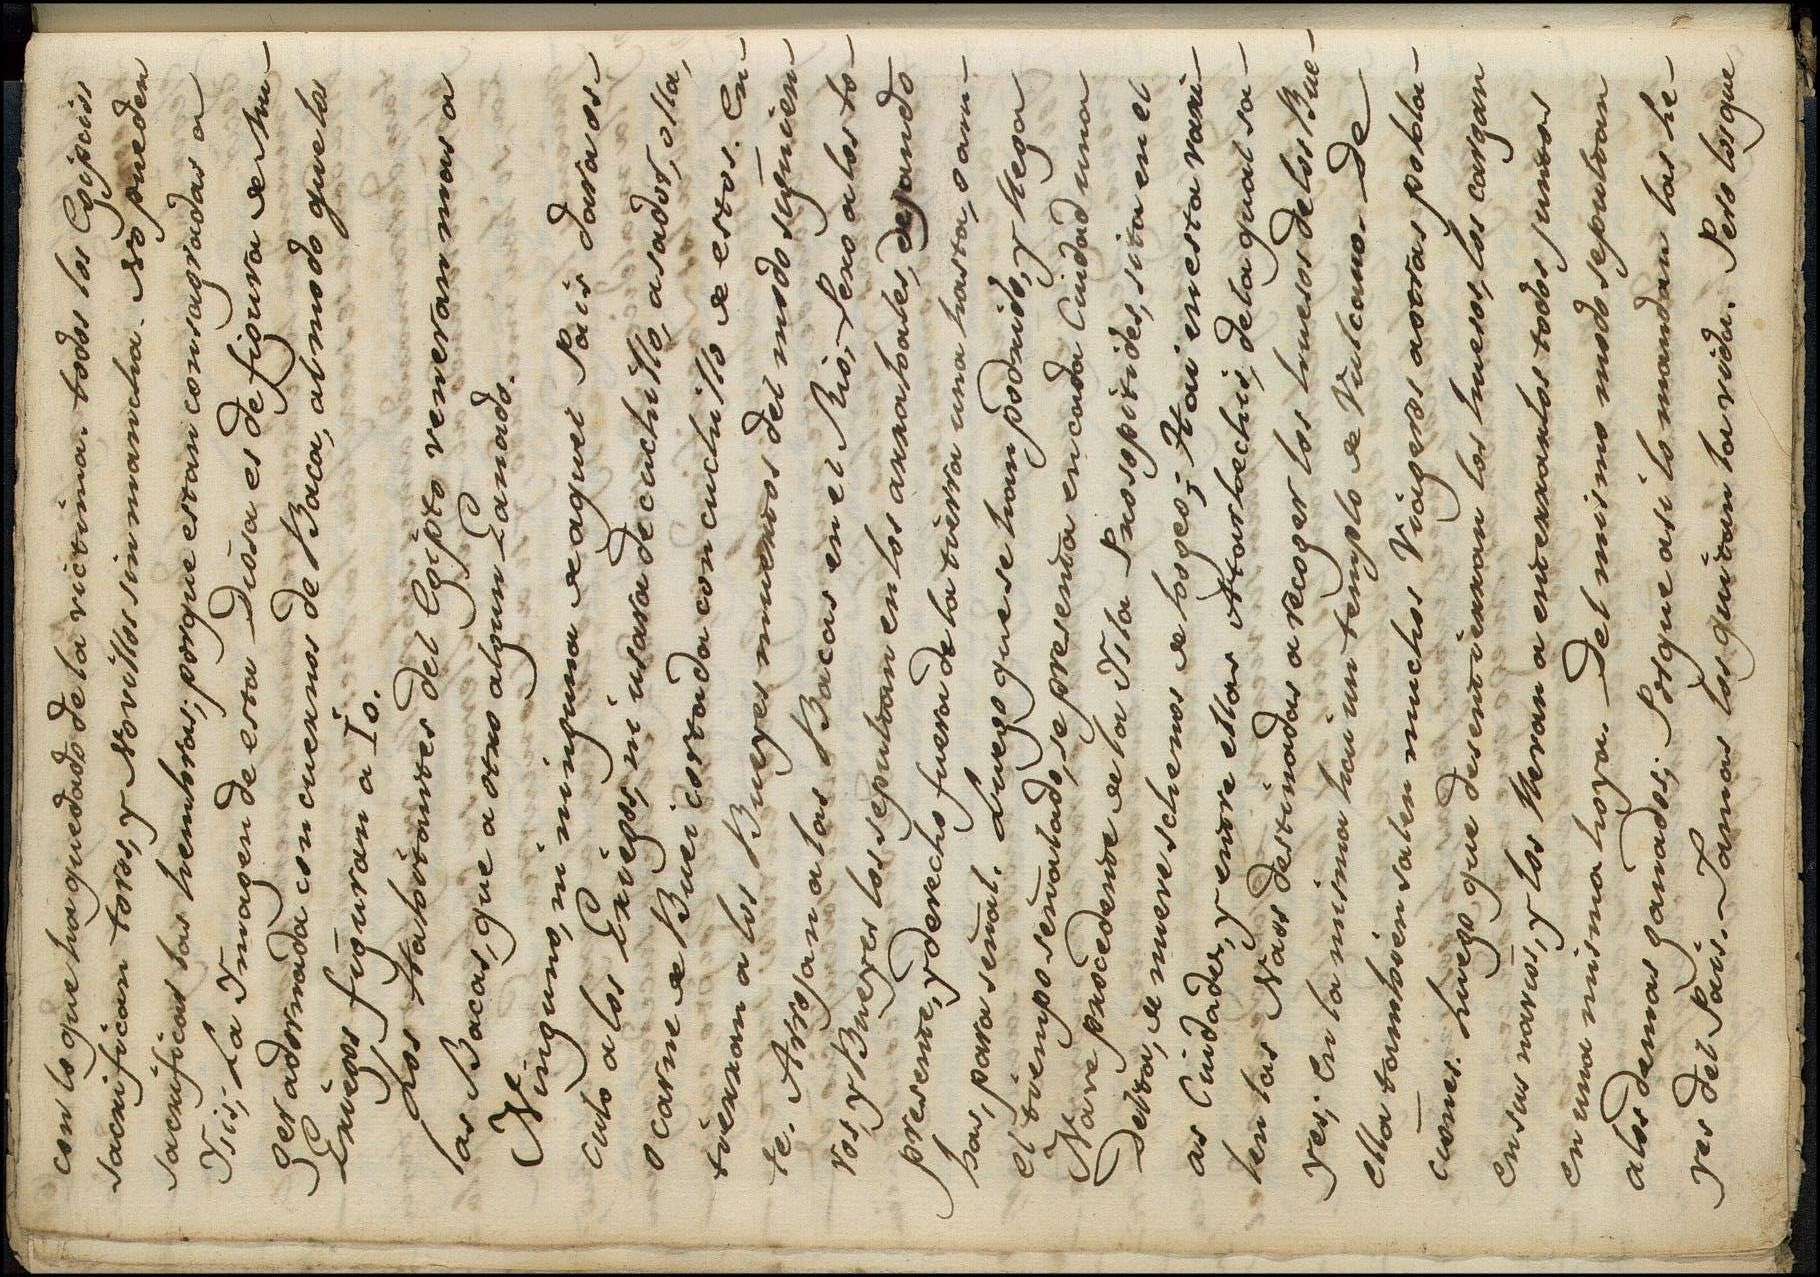 con lo que ha quedado de la victima. todos los Egipcios
sacrifican toros, y Novillos sin mancha. no pueden
sacrificar las hembras; porque estan consagradas a
Ysis; La Ymagen de esta Diosa es de figura de mu-
ger adornada con cuernos de Baca, al modo que los
Griegos figuran a Io.
Los Habitantes del Egipto veneran mas a
las Bacas, que a otro algun Ganado.
Ninguno, ni ninguna de aquel Pais dara os-
culo a los Griegos, ni usara de cuchillo, asador, olla,
o carne de Buei cortada con cuchillo de estos. En-
tierran a los Bueyes muertos del modo siguien-
te. Arrojan a las Bacas en el Rio; Pero a los to-
ros, y Bueyes los sepultan en los arrabales, dejando
presente, y derecho fuera de la tierra una hasta, o am-
bas, para señal. Luego que se han podrido, y llega
el tiempo señalado, se presenta en cada Ciudad una
Nave procedente de la Ysla Prosopitides, sita en el
Delta, de nueve schenos de bogeo; Hai en esta vari-
as Ciudades, y entre ellas Atarbechis, de la qual sa-
len las Naos destinadas a recoger los huesos de los Bue-
yes; En la misma hai un templo de Vulcano. De
ella tambien salen muchos Viageros a otras pobla-
ciones. luego que desentierran los huesos, los cargan
en sus navios, y los llevan a enterrarlos todos juntos
en una misma hoya. Del mismo modo sepultan
a los demas ganados; Porque asi lo mandan las le-
yes del Pais. Jamas les quitan la vida. Pero los que